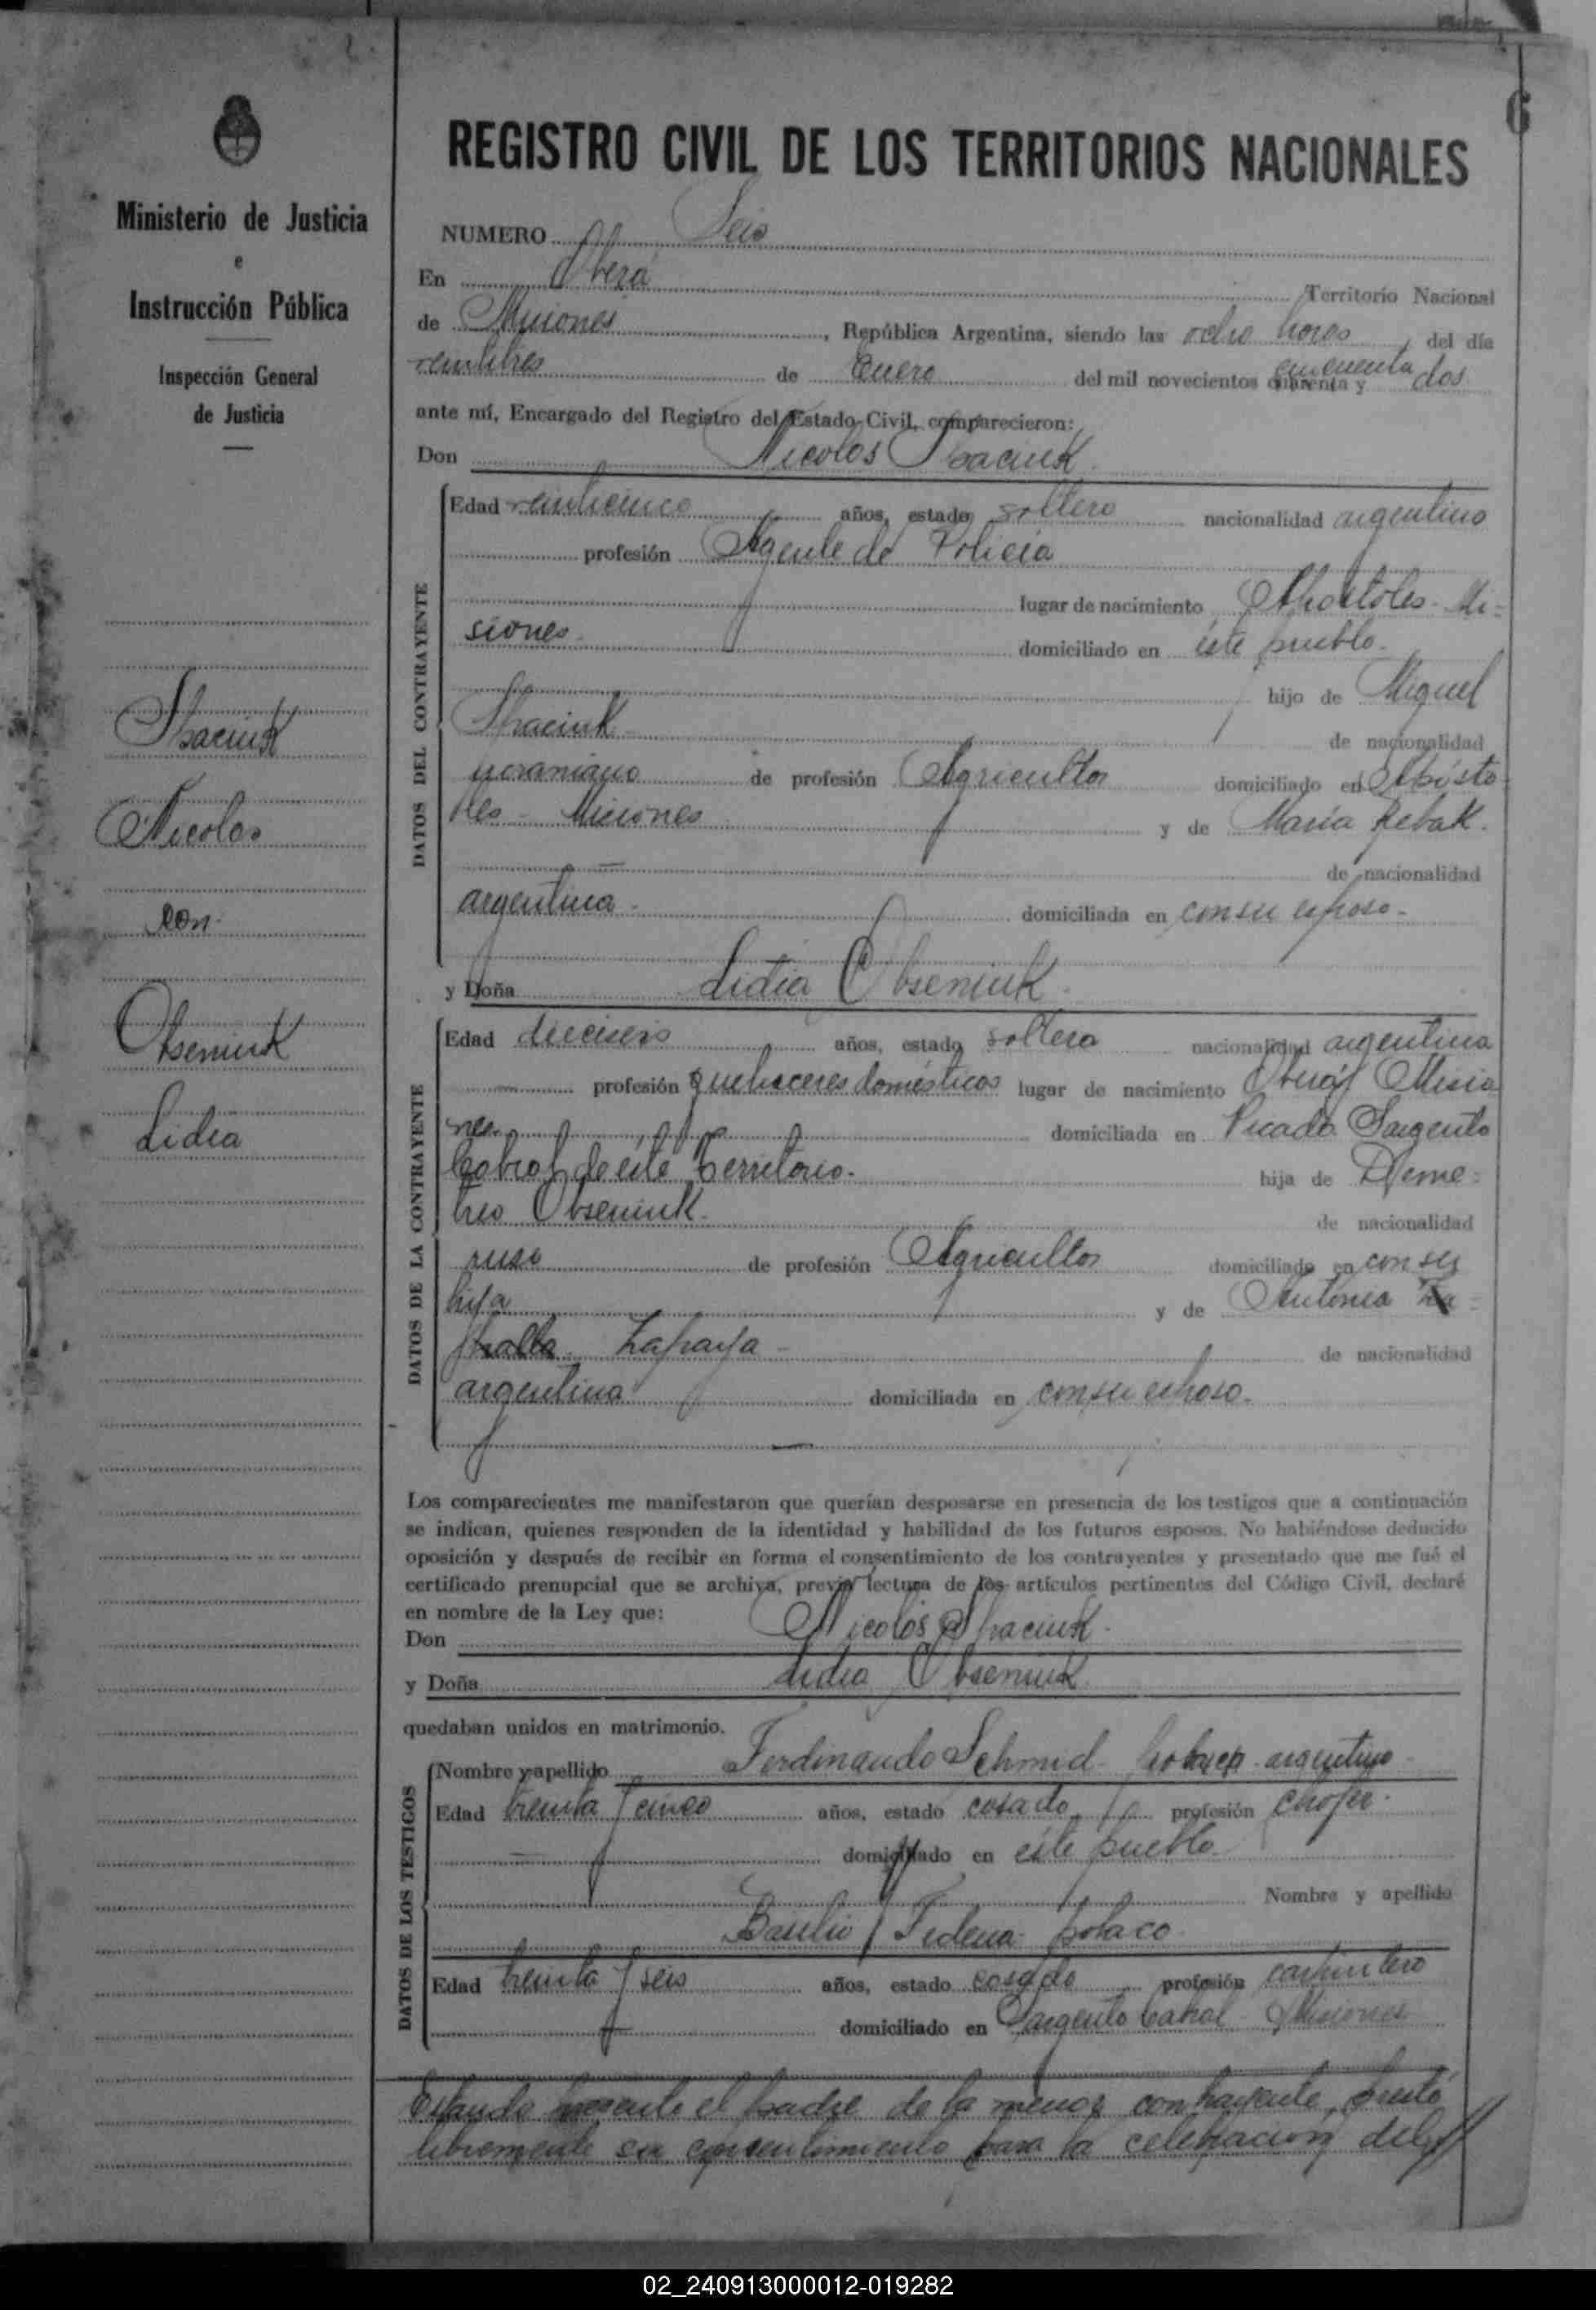 6
REGISTRO CIVIL DE LOS TERRITORIOS NACIONALES
Ministerio de Justicia
e
Instrucción Pública
Inspección General
de Justicia
NUMERO Seis
En Oberá Territorio Nacional
de Misiones, República Argentina, siendo las ocho horas, del día
veintitres de Enero del mil novecientos cuarenta y cincuenta dos
ante mí, Encargado del Registro del Estado Civil, comparecieron:
Don Nicolas
DATOS DEL CONTRAYENTE
Edad veinticinco años, estado soltero nacionalidad argentino
profesión Agente de Policia
lugar de nacimiento Apostoles - Mi=
siones domiciliado en éste pueblo.
hijo de Miguel
de nacionalidad
ucraniano de profesión Agricultor domiciliado en Apósto
les - Misiones y de María Rebak.
de nacionalidad
argentina domiciliada en con su esposo.
y Doña Lidia Obseniuk
DATOS DE LA CONTRAYENTE
Edad dieciseis años, estado soltera nacionalidad argentina
profesión quehaceres domésticos lugar de nacimiento Oberá Misio
nes domiciliada en Picada Sargento
Cabral de éste Territorio. hija de Deme=
trio Obseniuk. de nacionalidad
ruso de profesión Agricultor domiciliado en con su
hija y de Antonia
Zapaya - de nacionalidad
argentina domiciliada en con su esposo.
Los comparecientes me manifestaron que querían desposarse en presencia de los testigos que a continuación
se indican, quienes responden de la identidad y habilidad de los futuros esposos. No habiéndose deducido
oposición y después de recibir en forma el consentimiento de los contrayentes y presentado que me fué el
certificado prenupcial que se archiva, previa lectura de los artículos pertinentes del Código Civil, declaré
en nombre de la Ley que:
Don Nicolás
y Doña Lidia Obseniuk
quedaban unidos en matrimonio.
DATOS DE LOS TESTIGOS
Nombre y apellido Ferdinando Schmid argentino
Edad treinta y cinco años, estado casado profesión chofer.
domiciliado en éste pueblo.
Nombre y apellido
Basilio polaco
Edad treinta y seis años, estado casado profesión carpintero
domiciliado en Sargento Cabral - Misiones
Estando presente el padre de la menor contrayente, prestó
libremente su consentimiento para la celebración del
Nicolas
con
Obseniuk
Lidia
02_240913000012-019282